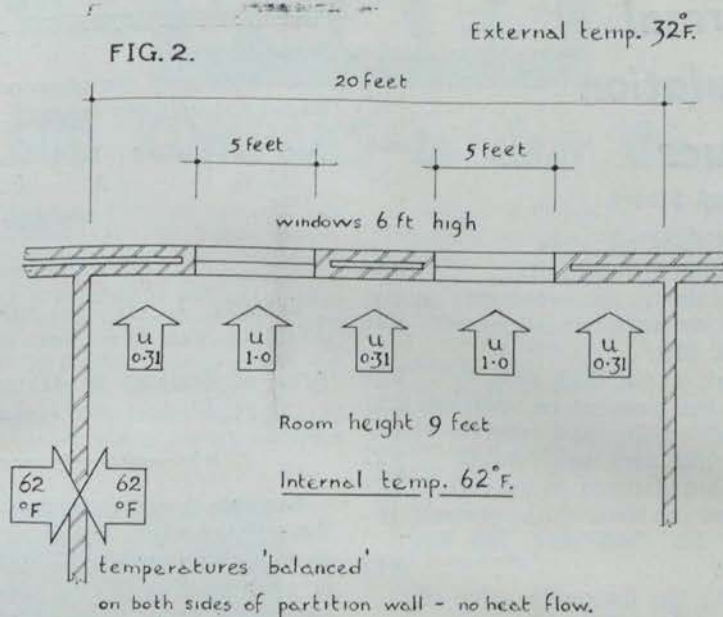 External temp. 32°F.
FIG. 2.
20 feet
5 feet 5 feet
windows 6 ft high
u u u u u
0·31 1·0 0·31 1·0 0·31
Room height 9 feet
Internal temp. 62°F.
62 62
°F °F
temperatures 'balanced'
on both sides of partition wall - no heat flow.